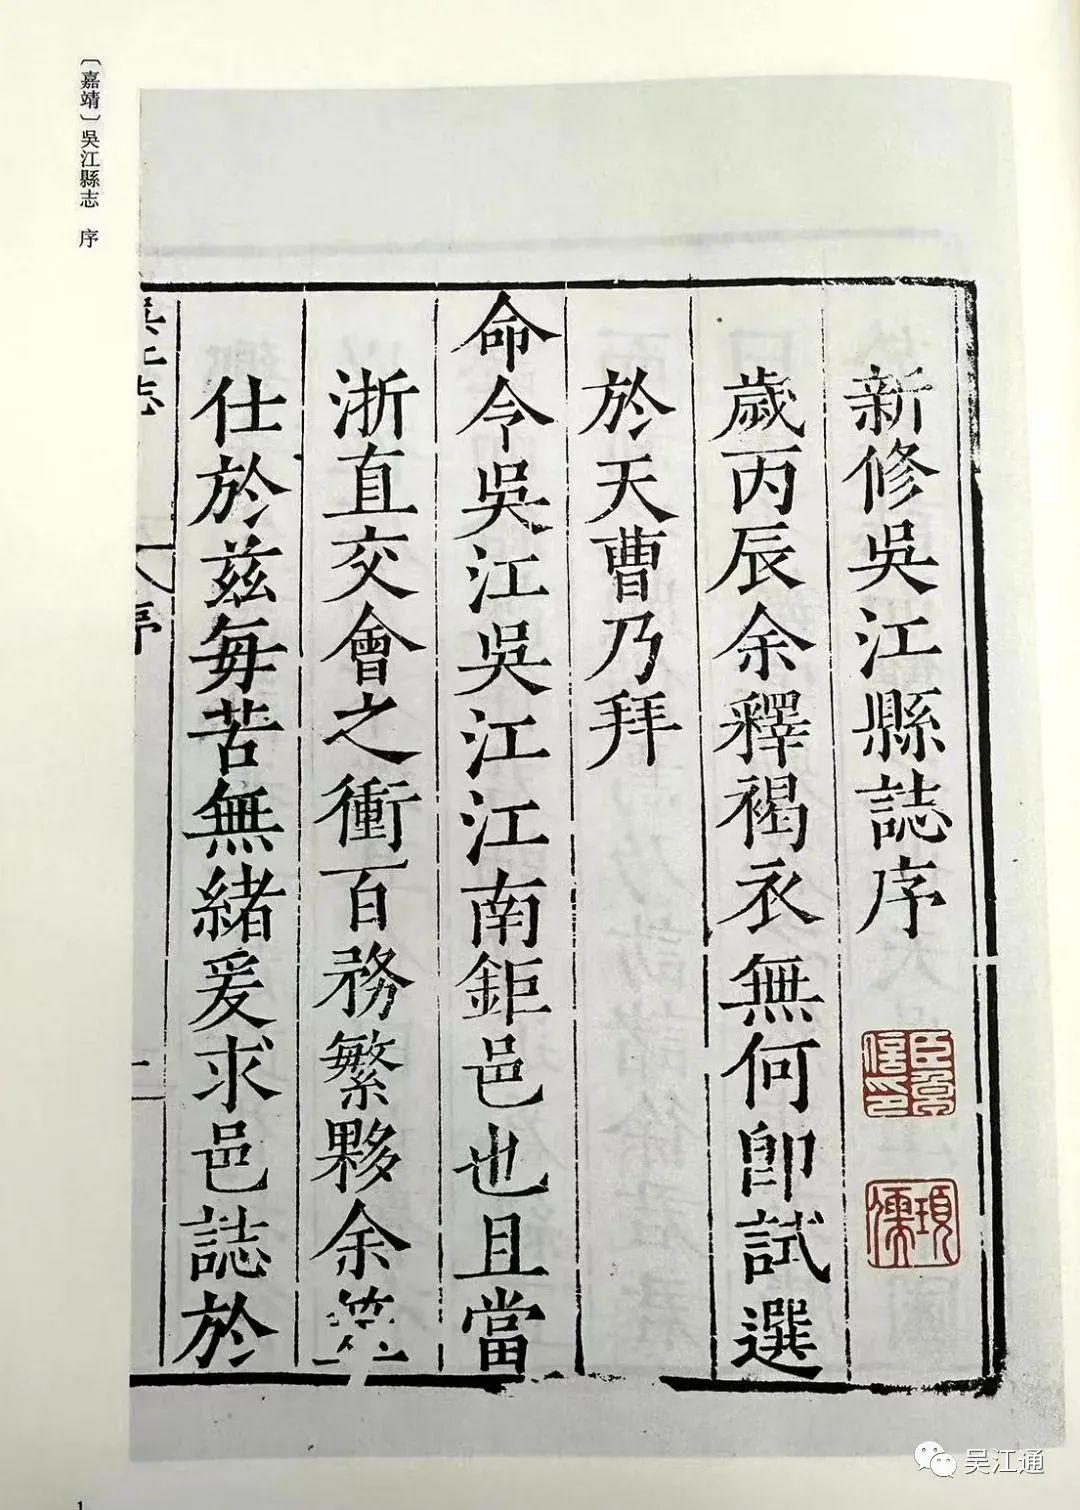 〔嘉靖〕吳江縣志 序
新修吳江縣誌序
歲丙辰余釋褐衣無何卽試選
於天曹乃拜
命令吳江吳江江南鉅邑也且當
浙直交會之衝百務繁夥余筮
仕於茲每苦無緒爰求邑誌於
吳江志
序
項儒
吴江通
1